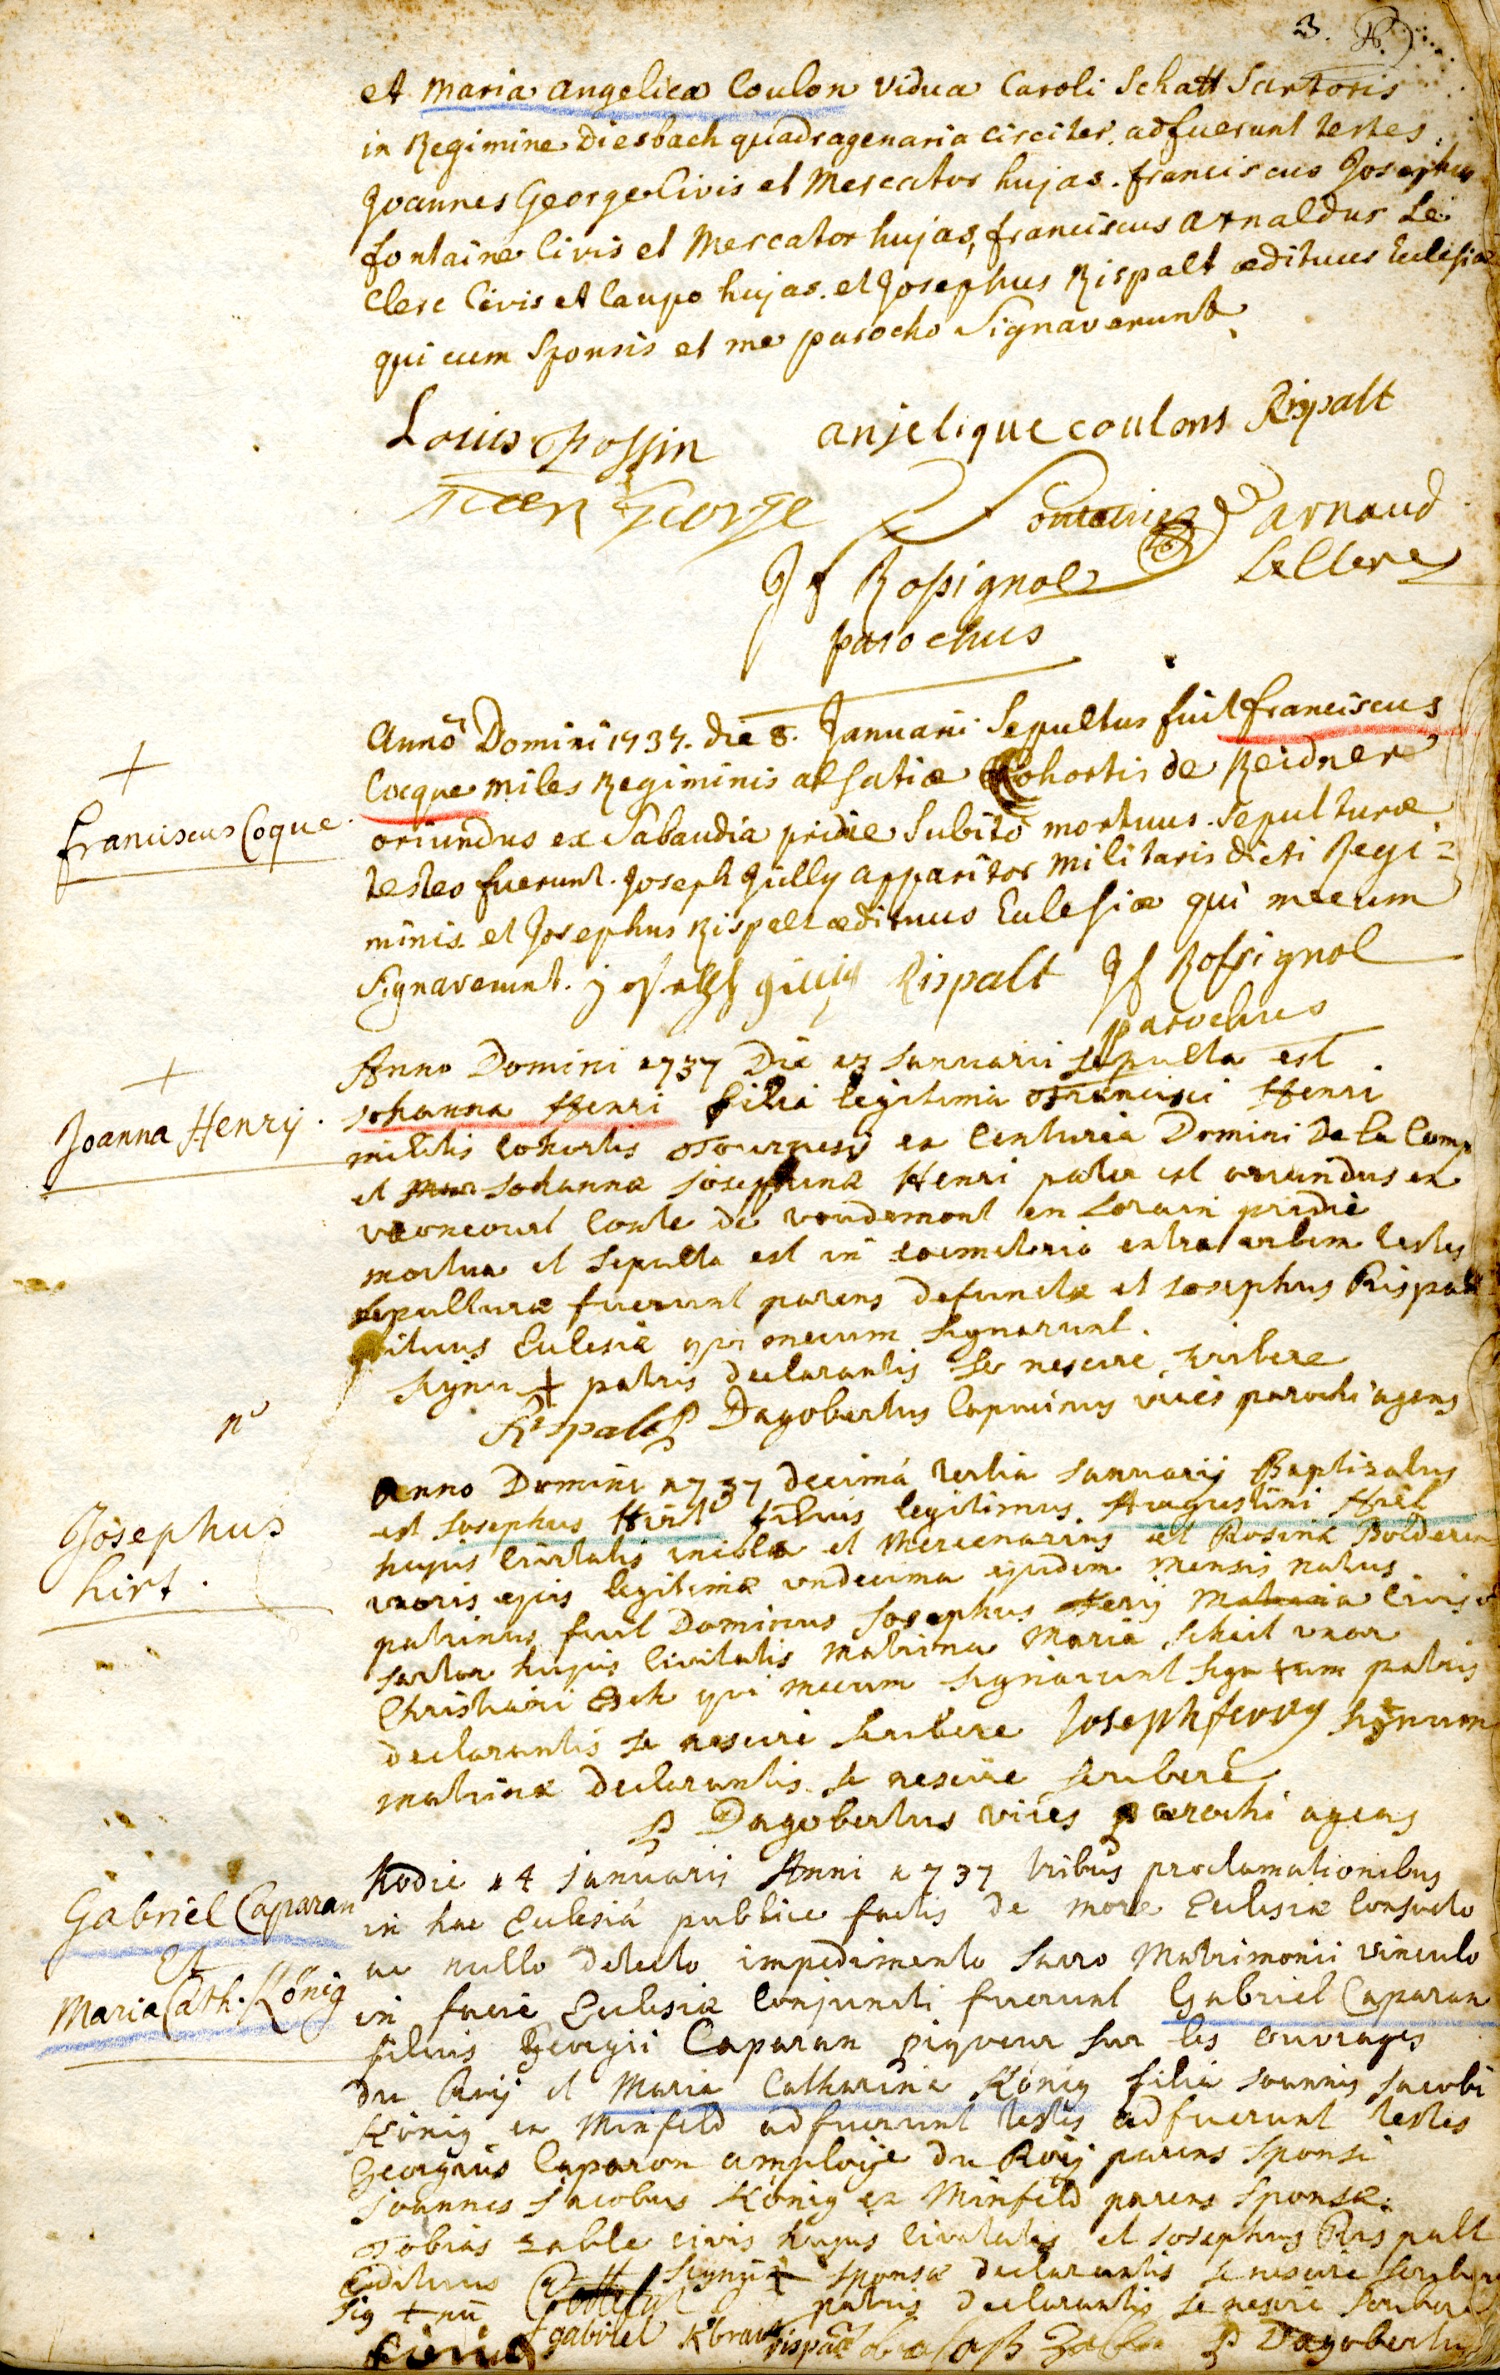 3.
et Maria Angelica Coulon vidua Caroli Schatt Sartoris
in Regimine Diesbach quadragenaria circiter. adfuerunt testes
Joannes George Civis et Mercator hujas. franciscus Josephus
fontaine Civis et Mercator hujas, franciscus arnaldus Le
Clerc Civis et Caupo hujas. et Josephus Rispalt ædituus Ecclesiæ
qui cum Sponsis et me parocho Signaverunt
Louis anjelique coulons Rispalt
Jean George arnaud
Jf Rossignol LeClerc
parochus
Anno Domini 1737. die 8. Januarii Sepultus fuit franciscus
Cocque miles Regiminis alsatiæ Cohortis de Reidner
Franciscus Coque.
oriundus ex Sabaudia pridie Subito mortuus. Sepulturæ
testes fuerunt. Joseph Gülly apparitor militaris dicti Regi=
minis et Josephus Rispalt ædituus Ecclesiæ qui mecum
Signaverunt. joseph gülly Rispalt Jf Rossignol
parochus
Anno Domini 1737 Die 13 Januarii Sepulta est
Joanna Henry.
Johanna Henri filia legitima Francisci Henri
militis cohortis ex Centuria Domini De la Camp
et Johannæ Josephinæ Henri pater est oriundus ex
vroncourt Conte de voudemont en Lorain pridie
mortua et sepulta est in coemeterio extra urbem testes
sepulturæ fuerunt parens defunctæ et Josephus Rispalt
ædituus Ecclesiæ qui mecum signarunt.
signum + patris declarantis se nescire scribere
Rispalt P Dagobertus Capucinus vices parochi agens
Anno Domini 1737 decimá tertia Januarij Baptizatus
est Josephus Hirt filius legitimus Augustini Hirt
Josephus
hirt.
hujus Civitatis incolæ et Mercenarius et Rosinæ
uxoris ejus legitimæ undecima ejusdem mensis natus
patrinus fuit Dominus Josephus Civis
sartor hujus Civitatis matrina Maria uxor
Christiani qui mecum signarunt signum patris
declarantis se nescire scribere Joseph signum
matrinæ declarantis se nescire scribere
P Dagobertus vices parochi agens
Hodie 14 Januarii Anni 1737 tribus proclamationibus
Gabriel Caparan
et
Maria Cath. König
in hac Ecclesiá publice factis de more Ecclesiæ Consueto
ac nullo detecto impedimento sacro Matrimonii vinculo
in facie Ecclesiæ Conjuncti fuerunt Gabriel Caparan
filius Georgii Caparan piqueur sur les ouvrages
du Roij et Maria Catharina König filia Joannis Jacobi
König ex Minfeld adfuerunt testes adfuerunt testes
Georgius Caparan emploije du Roij parens sponsi
Joannes Jacobus König ex Minfeld parens sponsæ.
Tobias zable civis hujus Civitatis et Josephus Rispalt
Edituus signum + sponsæ declarantis se nescire scribere
sig + num patris declarantis se nescire scribere
gabriel rispalt P Dagobertus